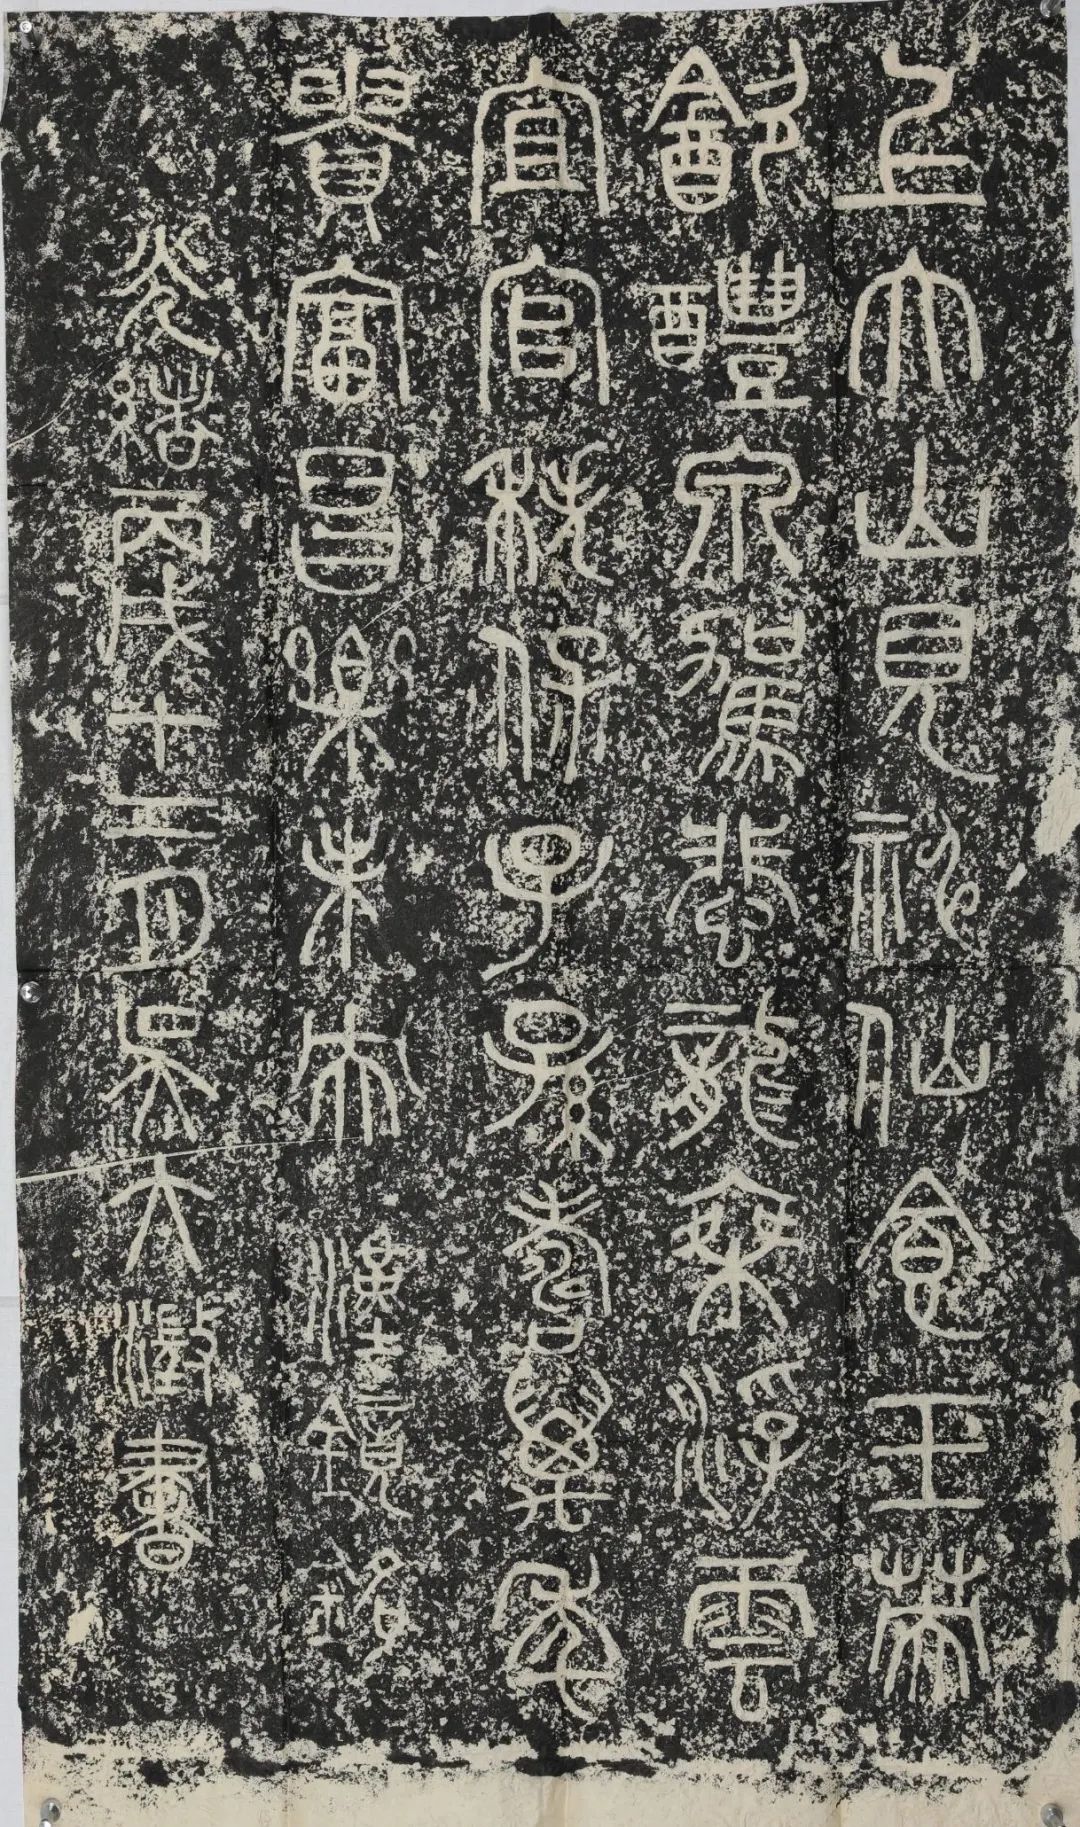 上大山見神仙食玉英
飲醴泉駕蜚龍乘浮雲
宜官秩保子孫壽萬年
貴富昌樂未央 漢鏡
光緒丙戌十二月吳大澂書